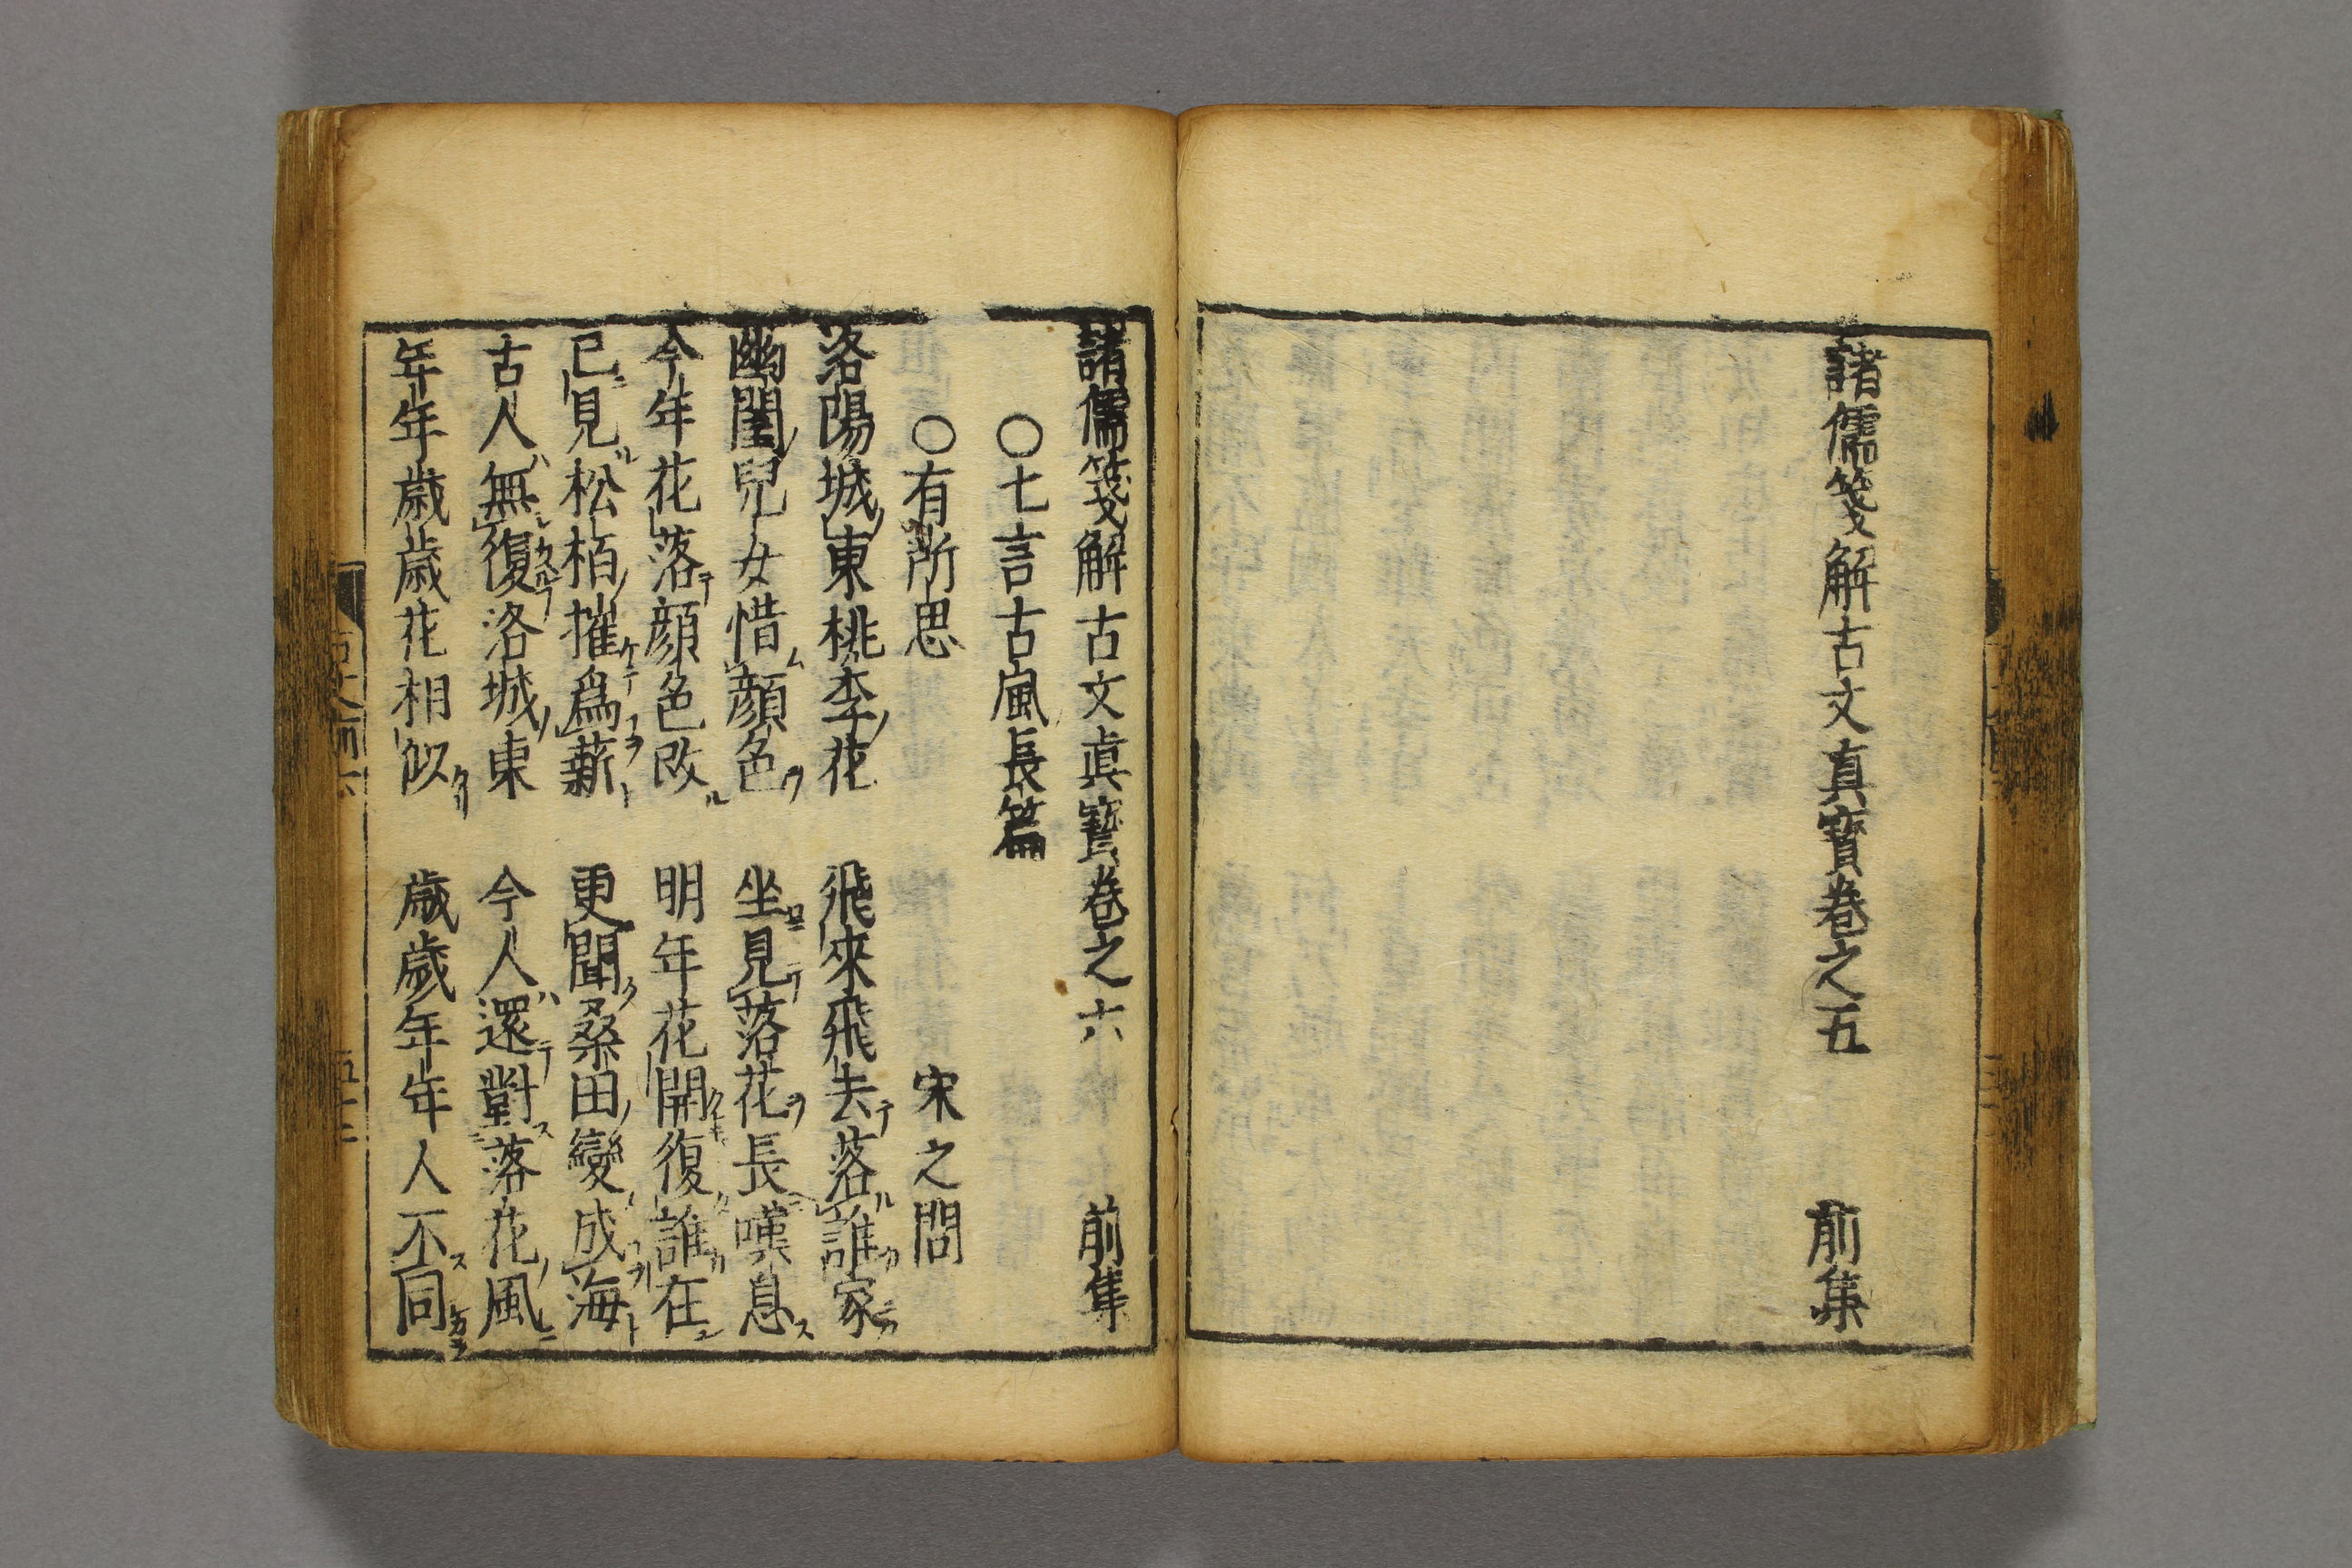 諸儒箋解古文真寶卷之五 前集
諸儒箋解古文眞寶卷之六 前集
○七言古風長篇
○有所思 宋之問
洛陽城東桃李花 飛來飛去落誰家
幽閨兒女惜顔色 坐見落花長嘆息
今年花落顔色改 明年花開復誰在
已見松栢摧爲薪 更聞桑田變成海
古人無復洛城東 今人還對落花風
年年歲歲花相似 歲歲年年人不同